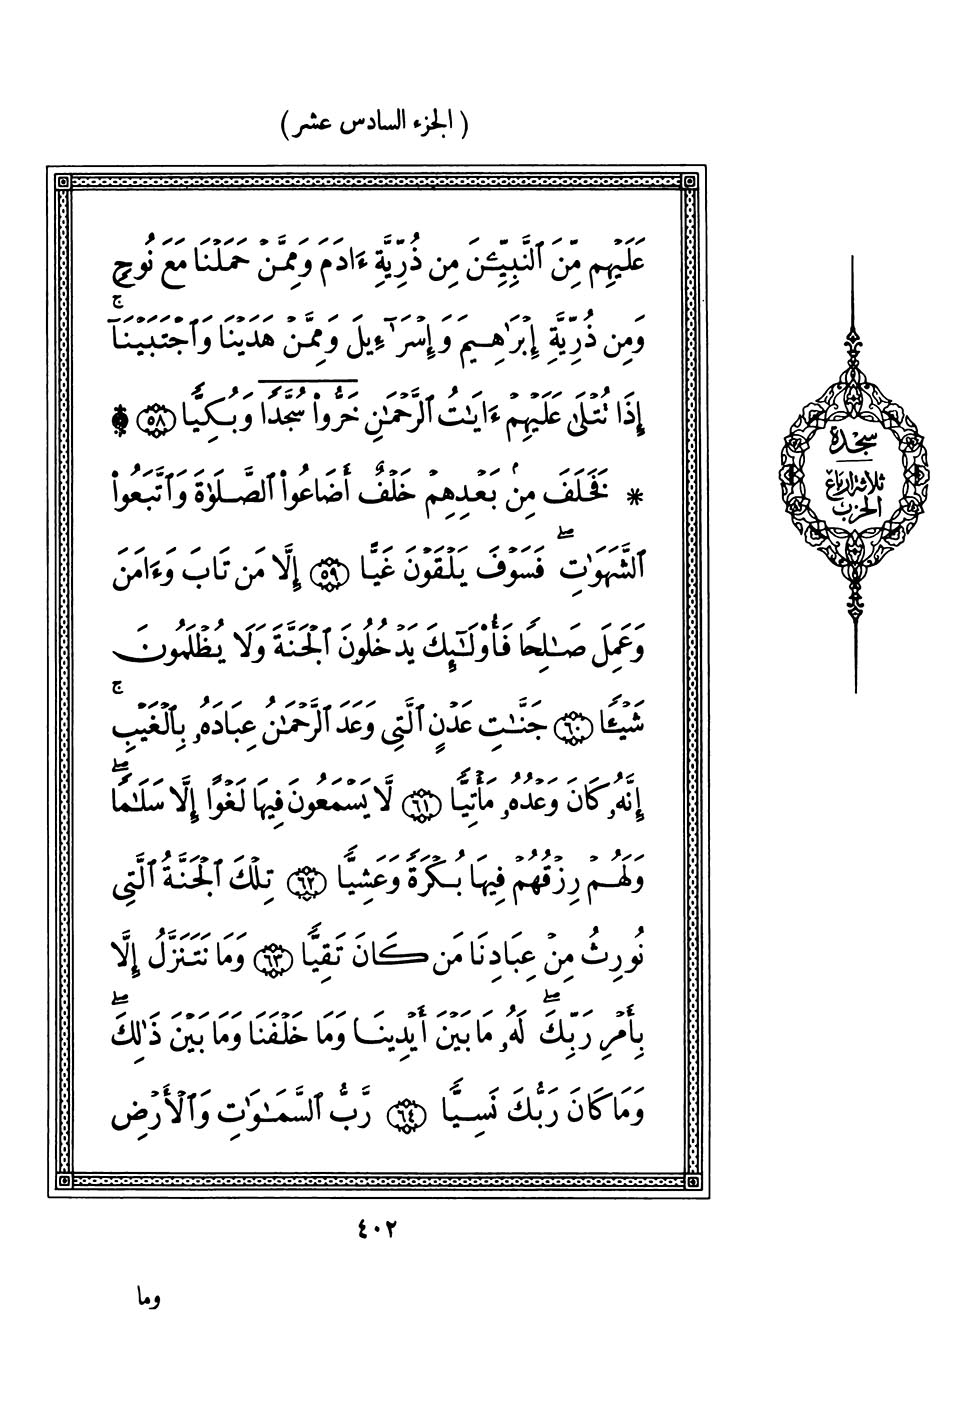 ( الجزء السادس عشر )
عَلَيْهِم مِّنَ ٱلنَّبِيِّـۧنَ مِن ذُرِّيَّةِ ءَادَمَ وَمِمَّنْ حَمَلْنَا مَعَ نُوحٍ
وَمِن ذُرِّيَّةِ إِبْرَٰهِيمَ وَإِسْرَٰٓءِيلَ وَمِمَّنْ هَدَيْنَا وَٱجْتَبَيْنَآ ۚ
إِذَا تُتْلَىٰ عَلَيْهِمْ ءَايَٰتُ ٱلرَّحْمَٰنِ خَرُّوا۟ سُجَّدًا وَبُكِيًّا ٥٨ ۩
* فَخَلَفَ مِنۢ بَعْدِهِمْ خَلْفٌ أَضَاعُوا۟ ٱلصَّلَوٰةَ وَٱتَّبَعُوا۟
ٱلشَّهَوَٰتِ ۖ فَسَوْفَ يَلْقَوْنَ غَيًّا ٥٩ إِلَّا مَن تَابَ وَءَامَنَ
وَعَمِلَ صَٰلِحًا فَأُو۟لَٰٓئِكَ يَدْخُلُونَ ٱلْجَنَّةَ وَلَا يُظْلَمُونَ
شَيْـًٔا ٦٠ جَنَّٰتِ عَدْنٍ ٱلَّتِى وَعَدَ ٱلرَّحْمَٰنُ عِبَادَهُۥ بِٱلْغَيْبِ ۚ
إِنَّهُۥ كَانَ وَعْدُهُۥ مَأْتِيًّا ٦١ لَّا يَسْمَعُونَ فِيهَا لَغْوًا إِلَّا سَلَٰمًا ۖ
وَلَهُمْ رِزْقُهُمْ فِيهَا بُكْرَةً وَعَشِيًّا ٦٢ تِلْكَ ٱلْجَنَّةُ ٱلَّتِى
نُورِثُ مِنْ عِبَادِنَا مَن كَانَ تَقِيًّا ٦٣ وَمَا نَتَنَزَّلُ إِلَّا
بِأَمْرِ رَبِّكَ ۖ لَهُۥ مَا بَيْنَ أَيْدِينَا وَمَا خَلْفَنَا وَمَا بَيْنَ ذَٰلِكَ ۚ
وَمَا كَانَ رَبُّكَ نَسِيًّا ٦٤ رَّبُّ ٱلسَّمَٰوَٰتِ وَٱلْأَرْضِ
سجدة
ثلاثة ارباع
الحزب
٤٠٢
وما